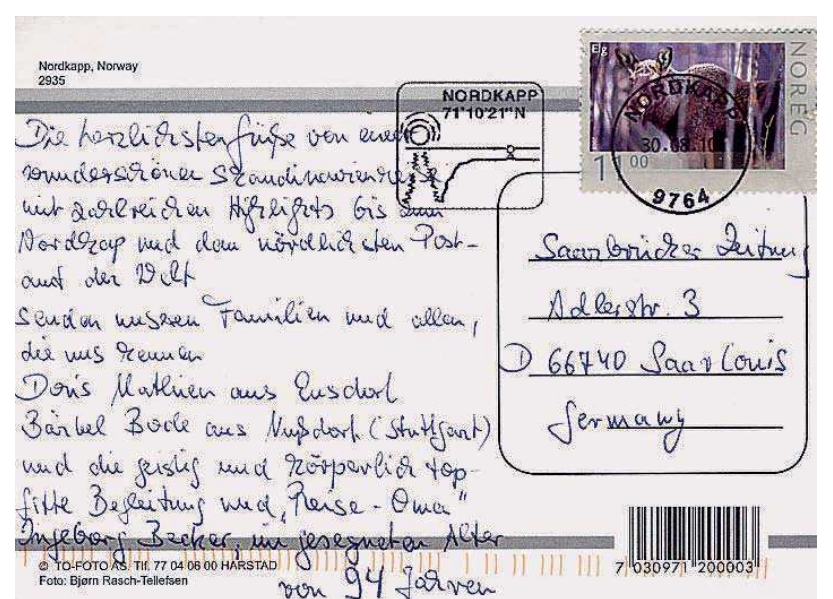 Nordkapp, Norway
2935
NORDKAPP
71°10'21"N
Elg
NOREG
11 00
NORDKAPP
30.08.10
9764
Die herzlichsten Grüße von einer
wunderschönen Skandinavienreise
mit zahlreichen Highlights bis zum
Nordkap und dem nördlichsten Post-
amt der Welt
senden unseren Familien und allen,
die uns kennen
Doris Mathieu aus Ensdorf
Bärbel Bode aus Nußdorf (Stuttgart)
und die geistig und körperlich top-
fitte Begleitung und „Reise-Oma"
Ingeborg Becker, im gesegneten Alter
von 94 Jahren
Saarbrücker Zeitung
Adlerstr. 3
D 66740 Saarlouis
Germany
© TO-FOTO AS. Tlf. 77 04 06 00 HARSTAD
Foto: Bjørn Rasch-Tellefsen
7 030971 200003